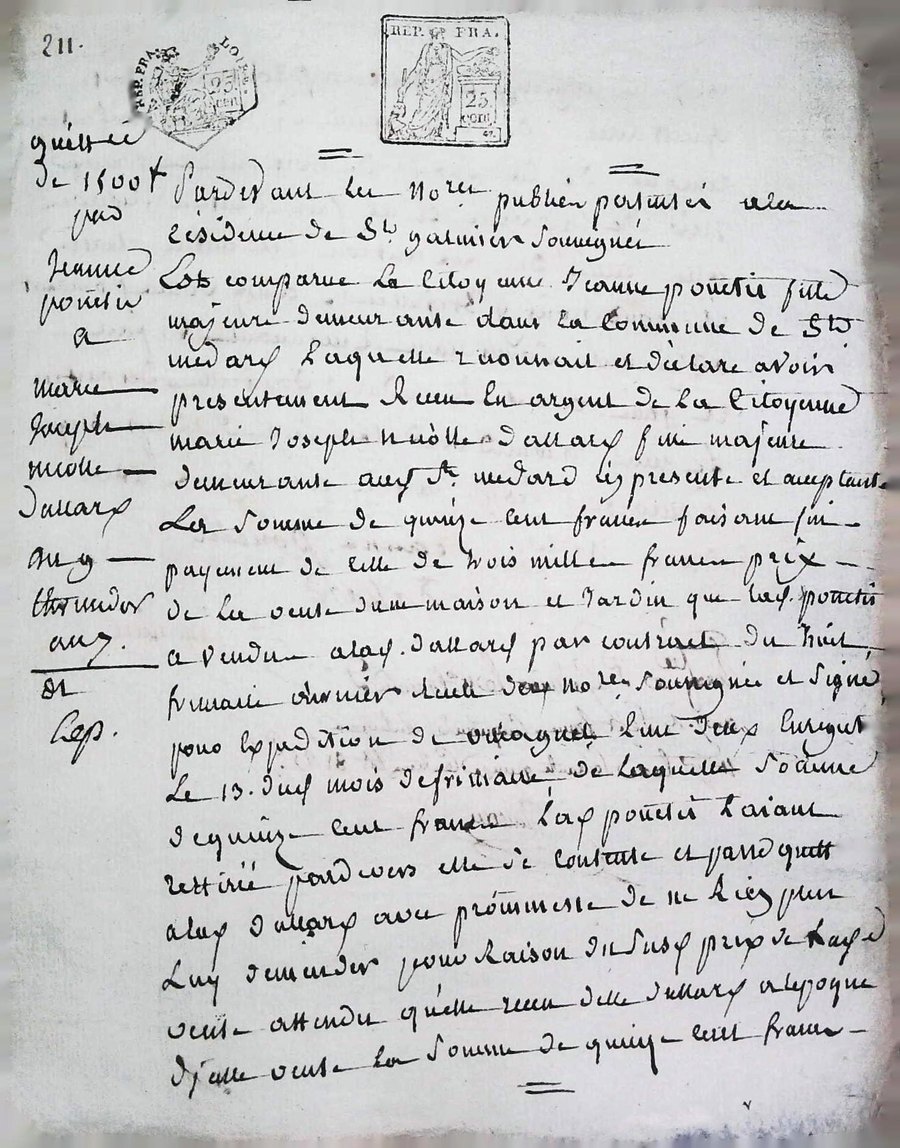 211.
REP. FRA.
25
cent
REP. FRA.
25
cent
quittce
de 1500 #
par
Jeanne
ponctis
a
marie
Joseph
nicolle
Dallard
du 9
thermidor
an 7.
Pardevant les no.res publics patentés a la
résidence de St galmier soussignés
Est comparue La Citoyenne Jeanne ponctis fille
majeure demeurante dans la Commune de St
médard Laquelle reconnait et déclare avoir
présentement Receu En argent de la Citoyenne
marie Joseph nicolle dallard fille majeure
demeurante aud St medard icy presente et aceptante
La Somme de quinze Cent francs faisant fin
payement de celle de trois mille francs prix
de La vente dune maison et Jardin que lad. ponctis
a vendu alad. dallard par contract du huit
frimaire dernier Receu des no.res Soussignés et Signé
pour Expedition de Lun deux Enregtré
Le 13. dud mois de frimaire de Laquelle Somme
de quinze Cent francs Lad ponctis Laiant
rettirée pardevers elle se Contente et passe quitt
alad dallard avec prommesse de ne Rien plus
Luy demander pour Raison du Susd prix de Lad
vente attendu quelle receu delle dallard alepoque
dicelle vente La Somme de quinze Cent francs